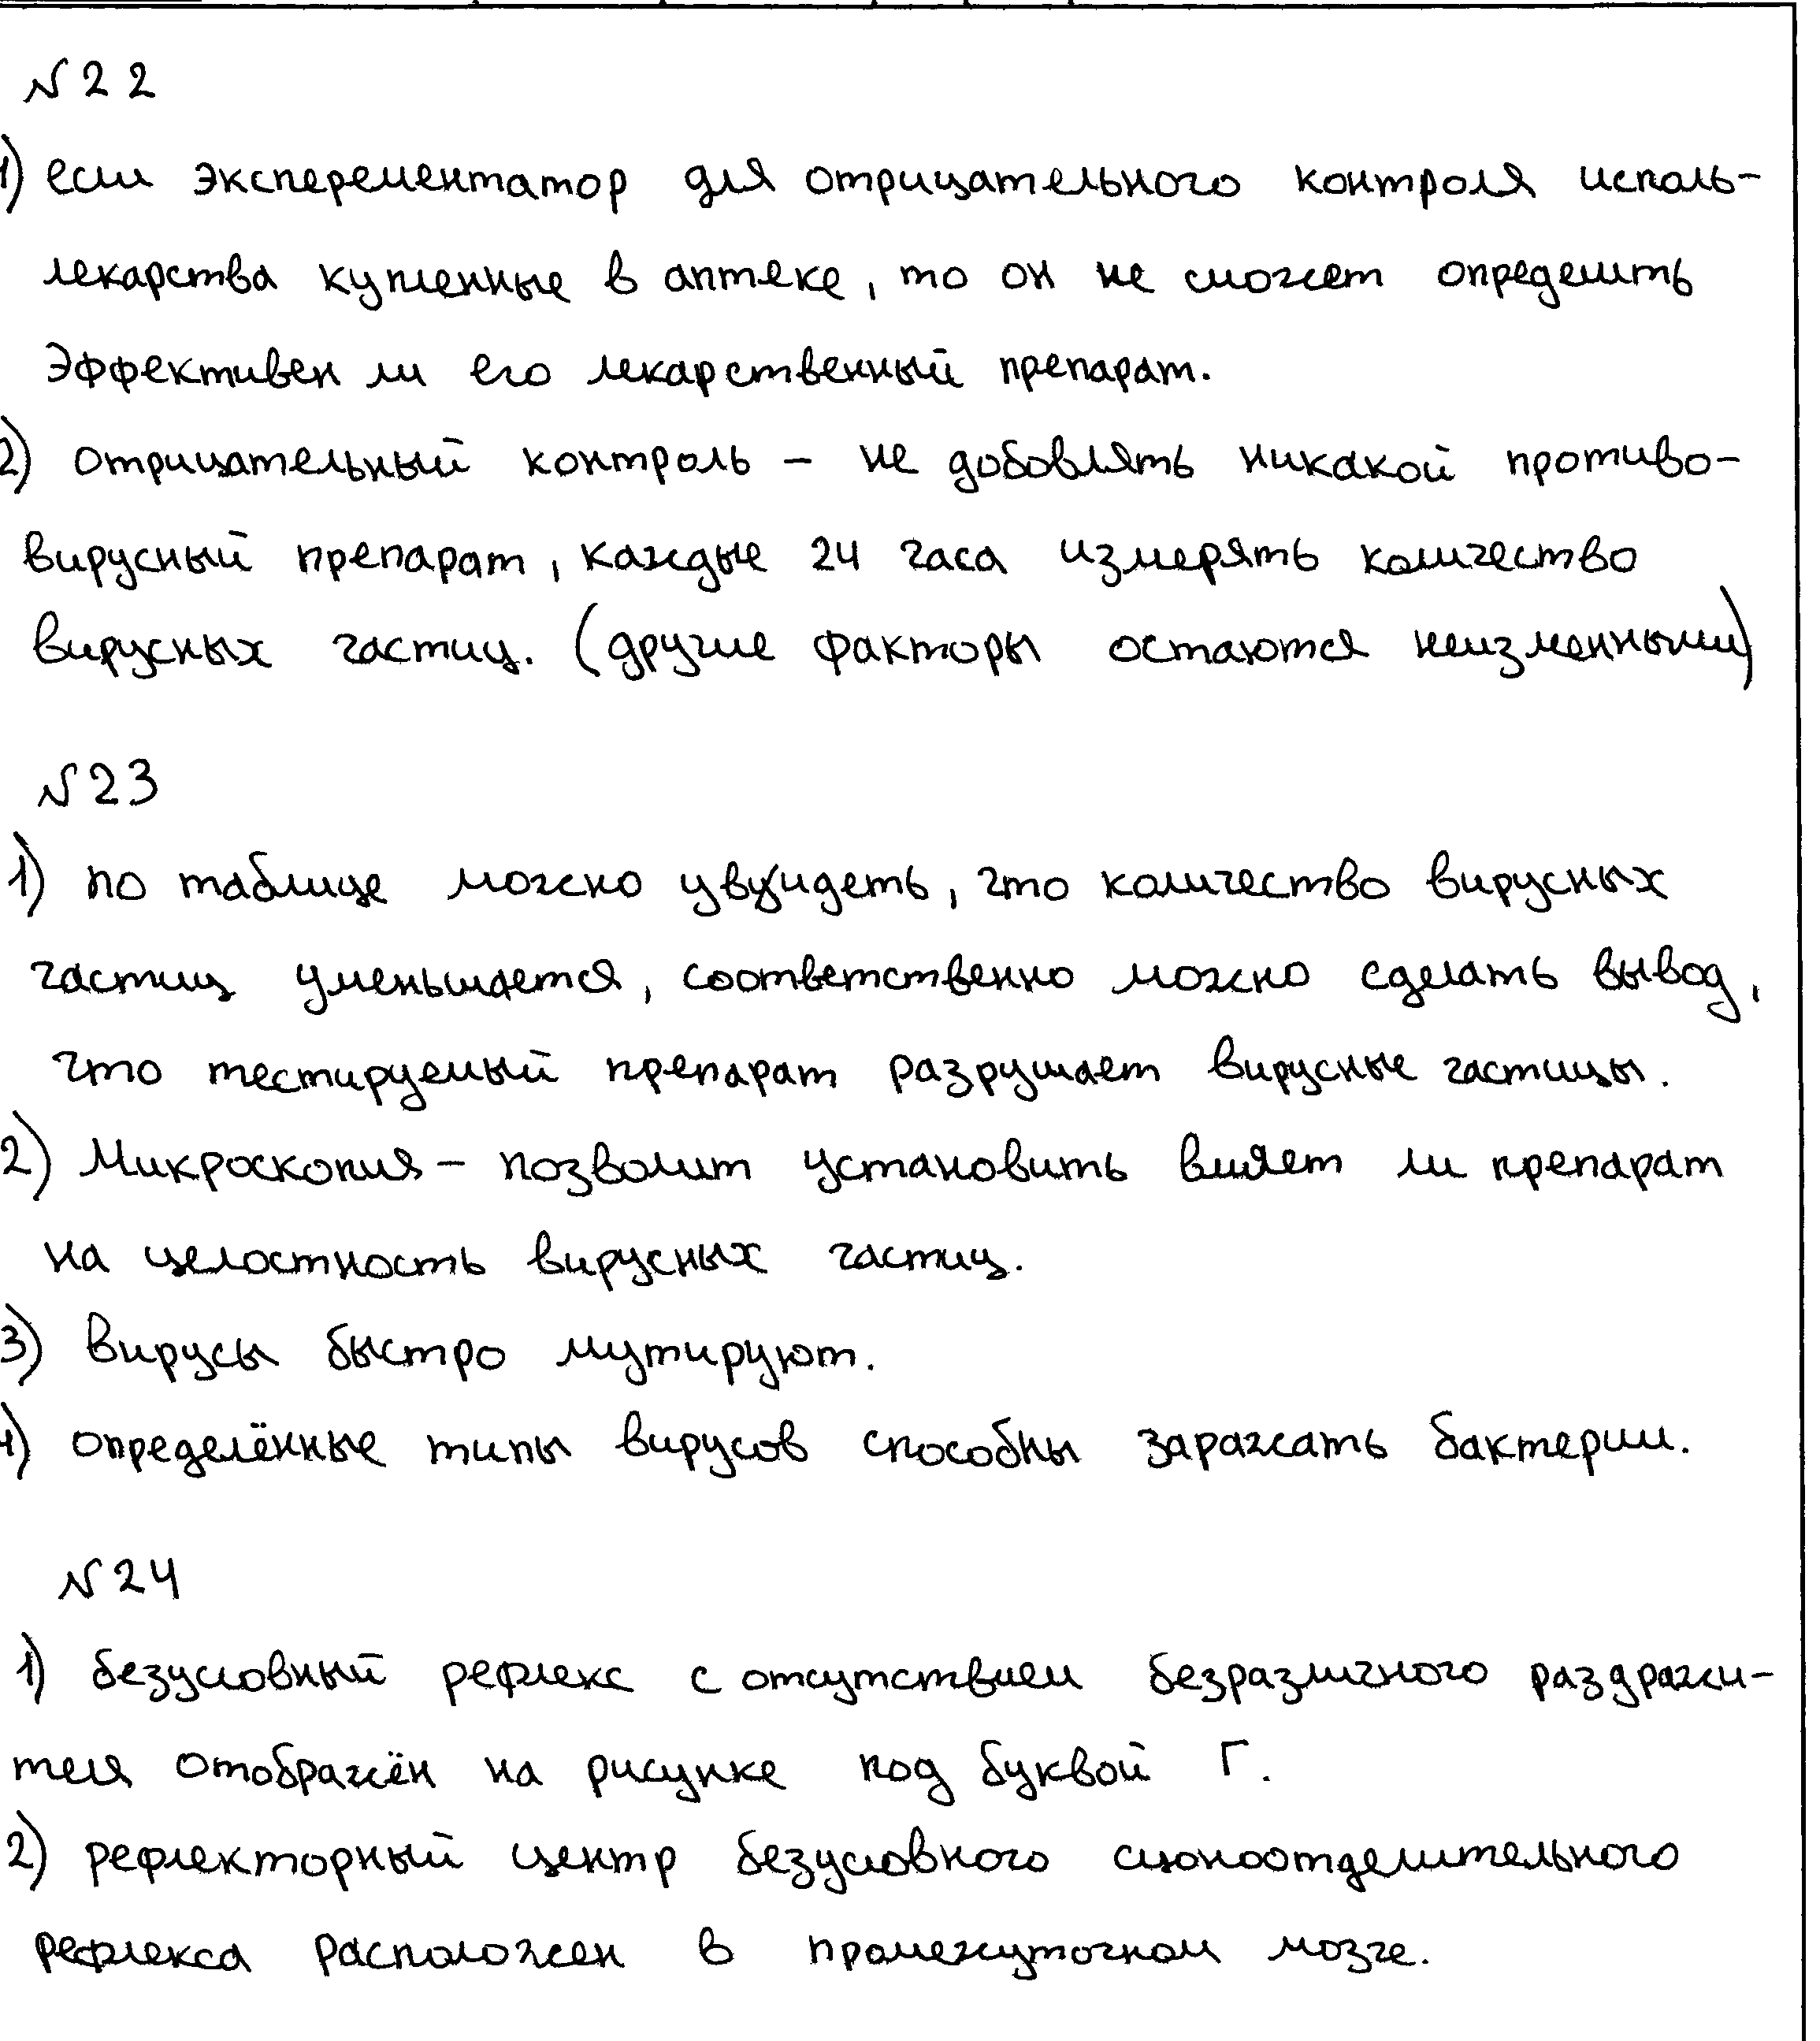 № 22
1) если эксперементатор для отрицательного контроля исполь-
лекарства купленные в аптеке, то он не сможет определить
эффективен ли его лекарственный препарат.
2) отрицательный контроль – не добовлять никакой противо-
вирусный препарат, каждые 24 часа измерять количество
вирусных частиц. (другие факторы остаются неизменными)
№ 23
1) по таблице можно увидеть, что количество вирусных
частиц уменьшается, соответственно можно сделать вывод,
что тестируемый препарат разрушает вирусные частицы.
2) Микроскопия – позволит установить влияет ли препарат
на целостность вирусных частиц.
3) вирусы быстро мутируют.
4) определённые типы вирусов способны заражать бактерии.
№ 24
1) безусловный рефлекс с отсутствием безразличного раздражи-
теля отображён на рисунке под буквой Г.
2) рефлекторный центр безусловного слюноотделительного
рефлекса расположен в промежуточном мозге.